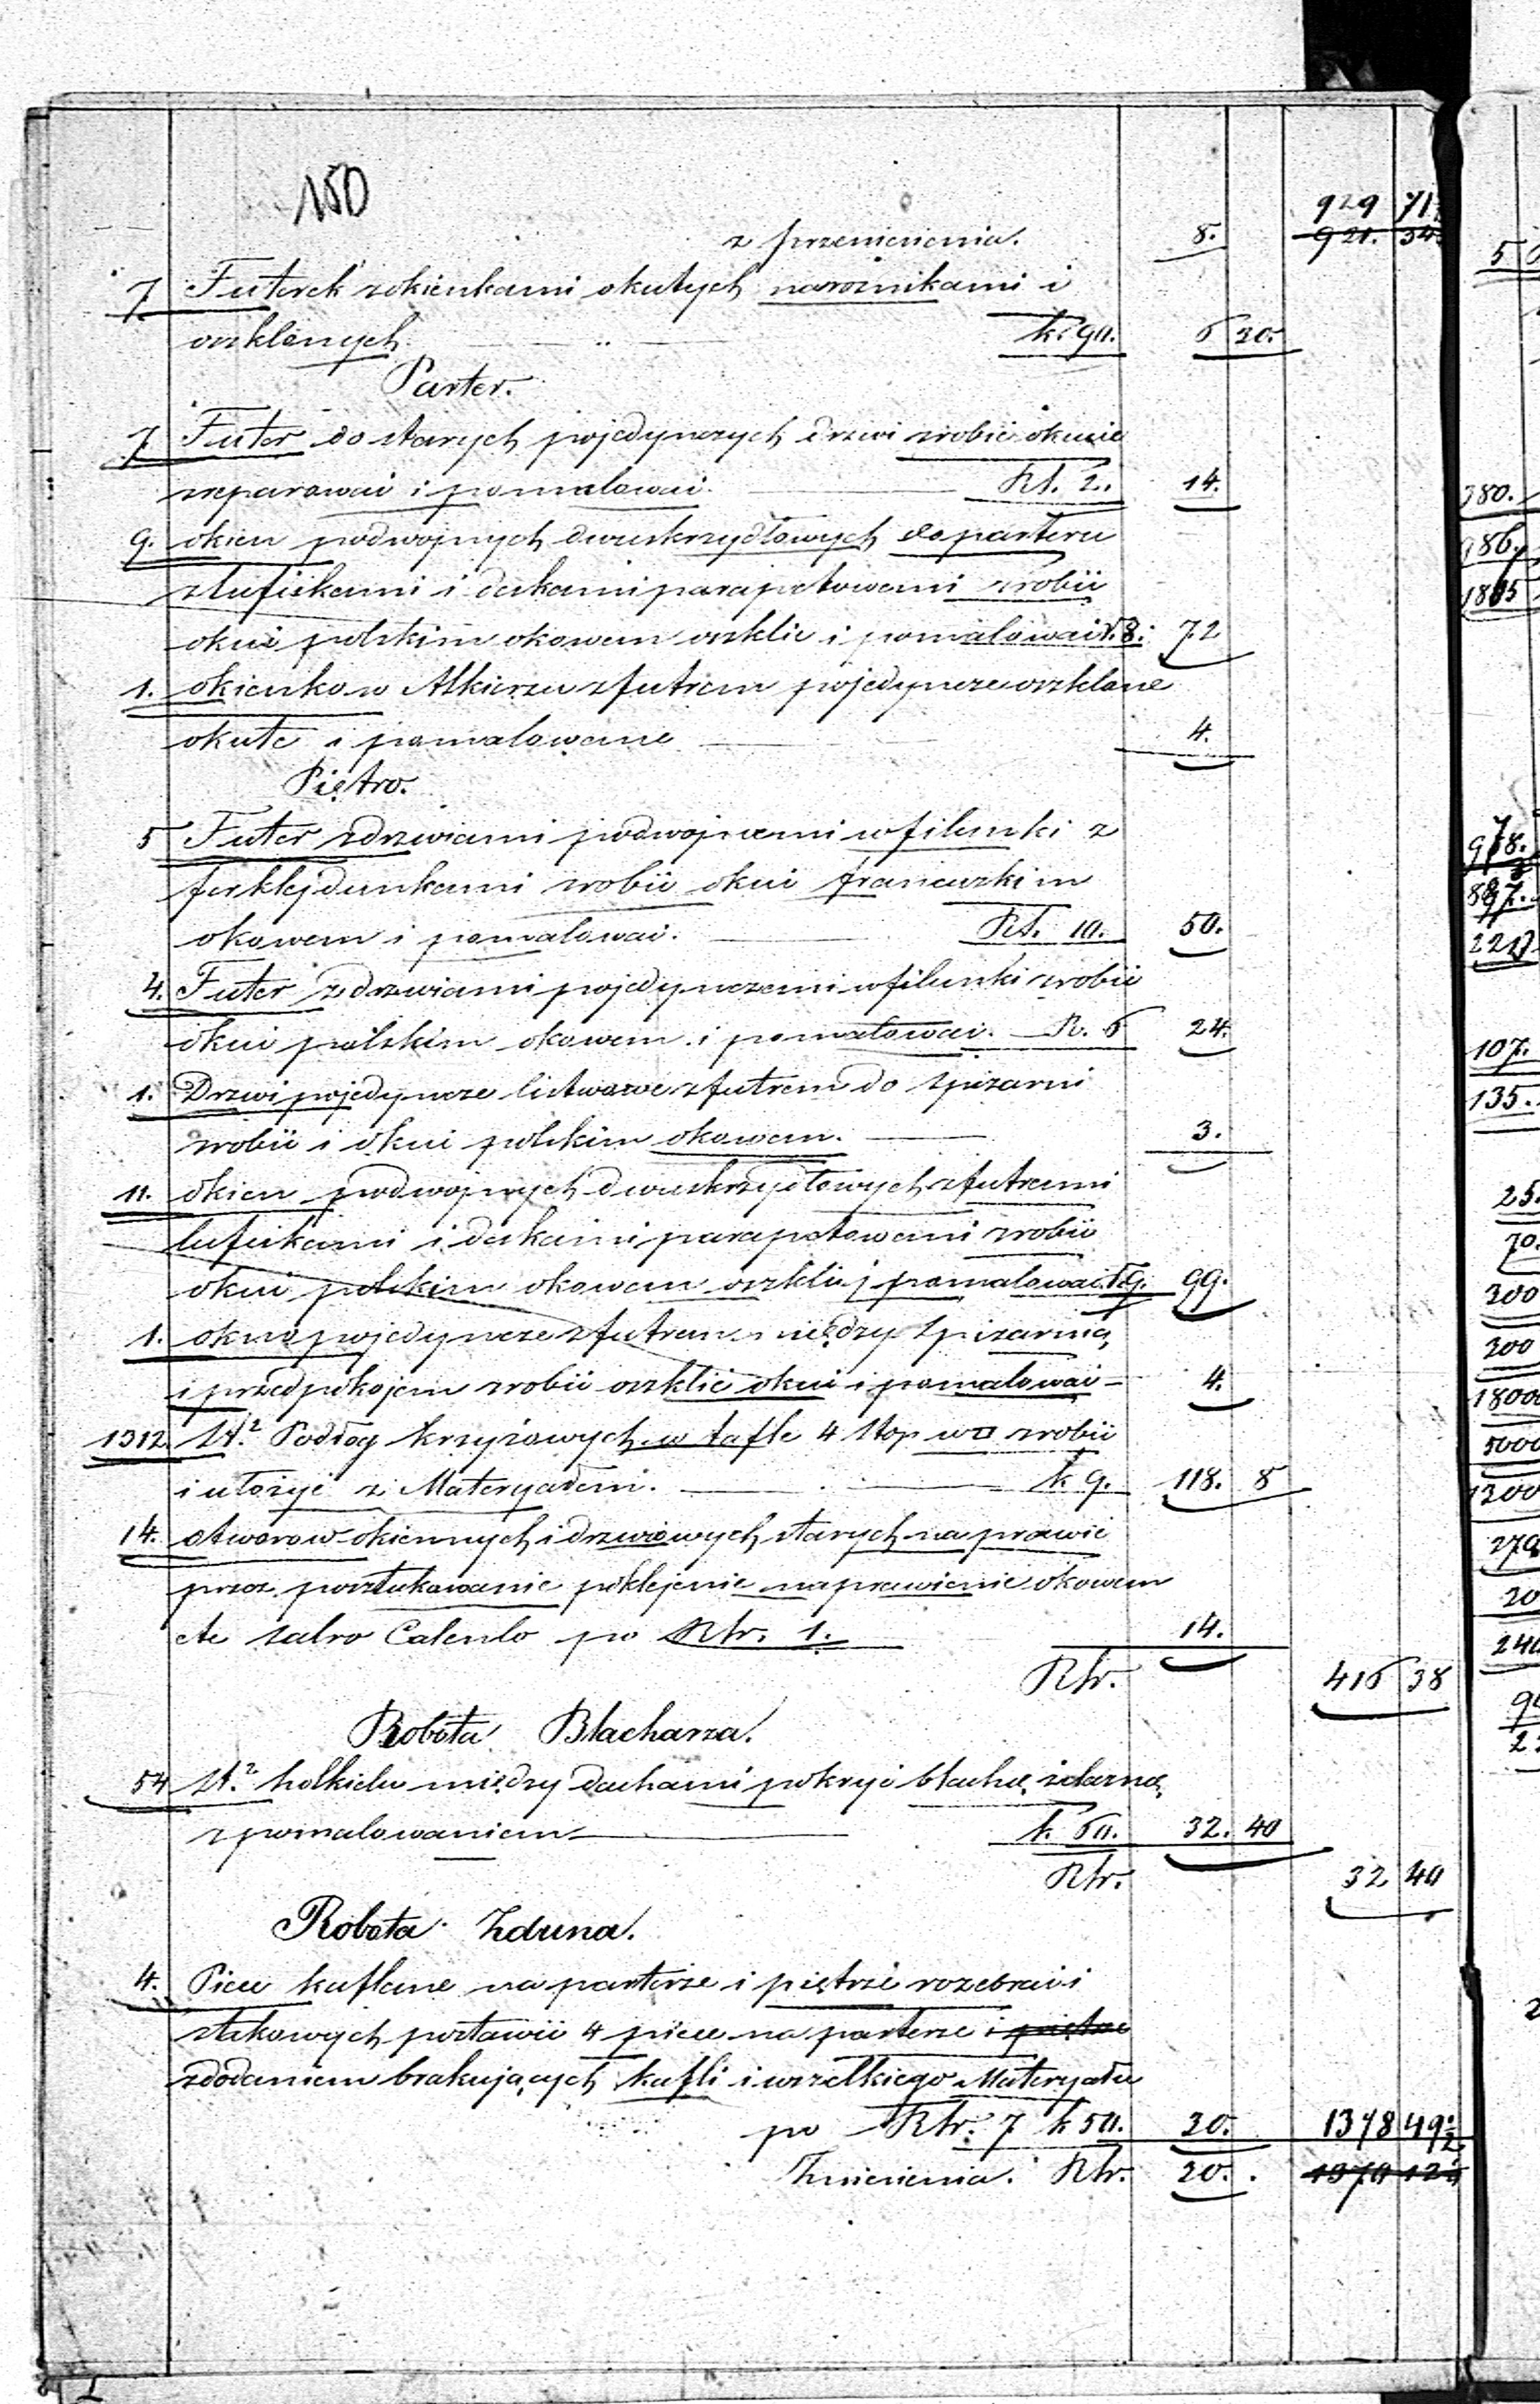 150
929 71
z przeniesienia. 8. 921. 54
7 Futerek z okienkami okutych narożnikami i
oszklonych k. 90. 6 30.
Parter.
7 Futer do starych pojedynczych drzwi zrobić okucie
zreparować i pomalować. Rt. 2. 14.
9. okien podwojnych dwuskrzydłowych do parteru
z lufcikami i deskami parapetowemi zrobić
okuć polskim okowem oszklić i pomalować r. 8. 72
1. okienko w Alkierzu z futrem pojedyncze oszklone
okute i pomalowane 4.
Piętro.
5 Futer z drzwiami podwojnemi w filunki z
ferklejdunkami zrobić okuć francuzkim
okowem i pomalować. Rt. 10. 50.
4. Futer z drzwiami pojedynczemi w filunki zrobić
okuć polskim okowem i pomalować. R. 6 24.
1. Drzwi pojedyncze listwowe z futrem do Spiżarni
zrobić i okuć polskim okowem. 3.
11. okien podwojnych dwuskrzydłowych z futrami
lufcikami i deskami parapetowemi zrobić
okuć polskim okowem oszklić i pomalować r. 9. 99.
1. okno pojedyncze z futrem między Spiżarnią
i przedpokojem zrobić oszklić okuć i pomalować 4.
1312. St.² Podłog krzyżowych w tafle 4 Stop w □ zrobić
i ułożyć z Materyałem. k 9. 118. 8
14. otworow okiennych i drzwiowych starych naprawić
przez posztukowanie poklejenie naprawienie okowem
etc Salvo Calculo po Rtr. 1. 14.
Rtr. 416 38
Robota Blacharza.
54 St.² holkielu między dachami pokryć blachą żelazną
z pomalowaniem k. 60. 32. 40
Rtr. 32 40
Robota Zduna.
4. Piece kaflane na parterze i piętrze rozebrać i
z takowych postawić 4 piece na parterze i piętrze
z dodaniem brakujących kafli i wszelkiego Materyału
po Rtr. 7 k 50. 30. 1378 49½
Zniesienia. Rtr. 30. 1370 12½